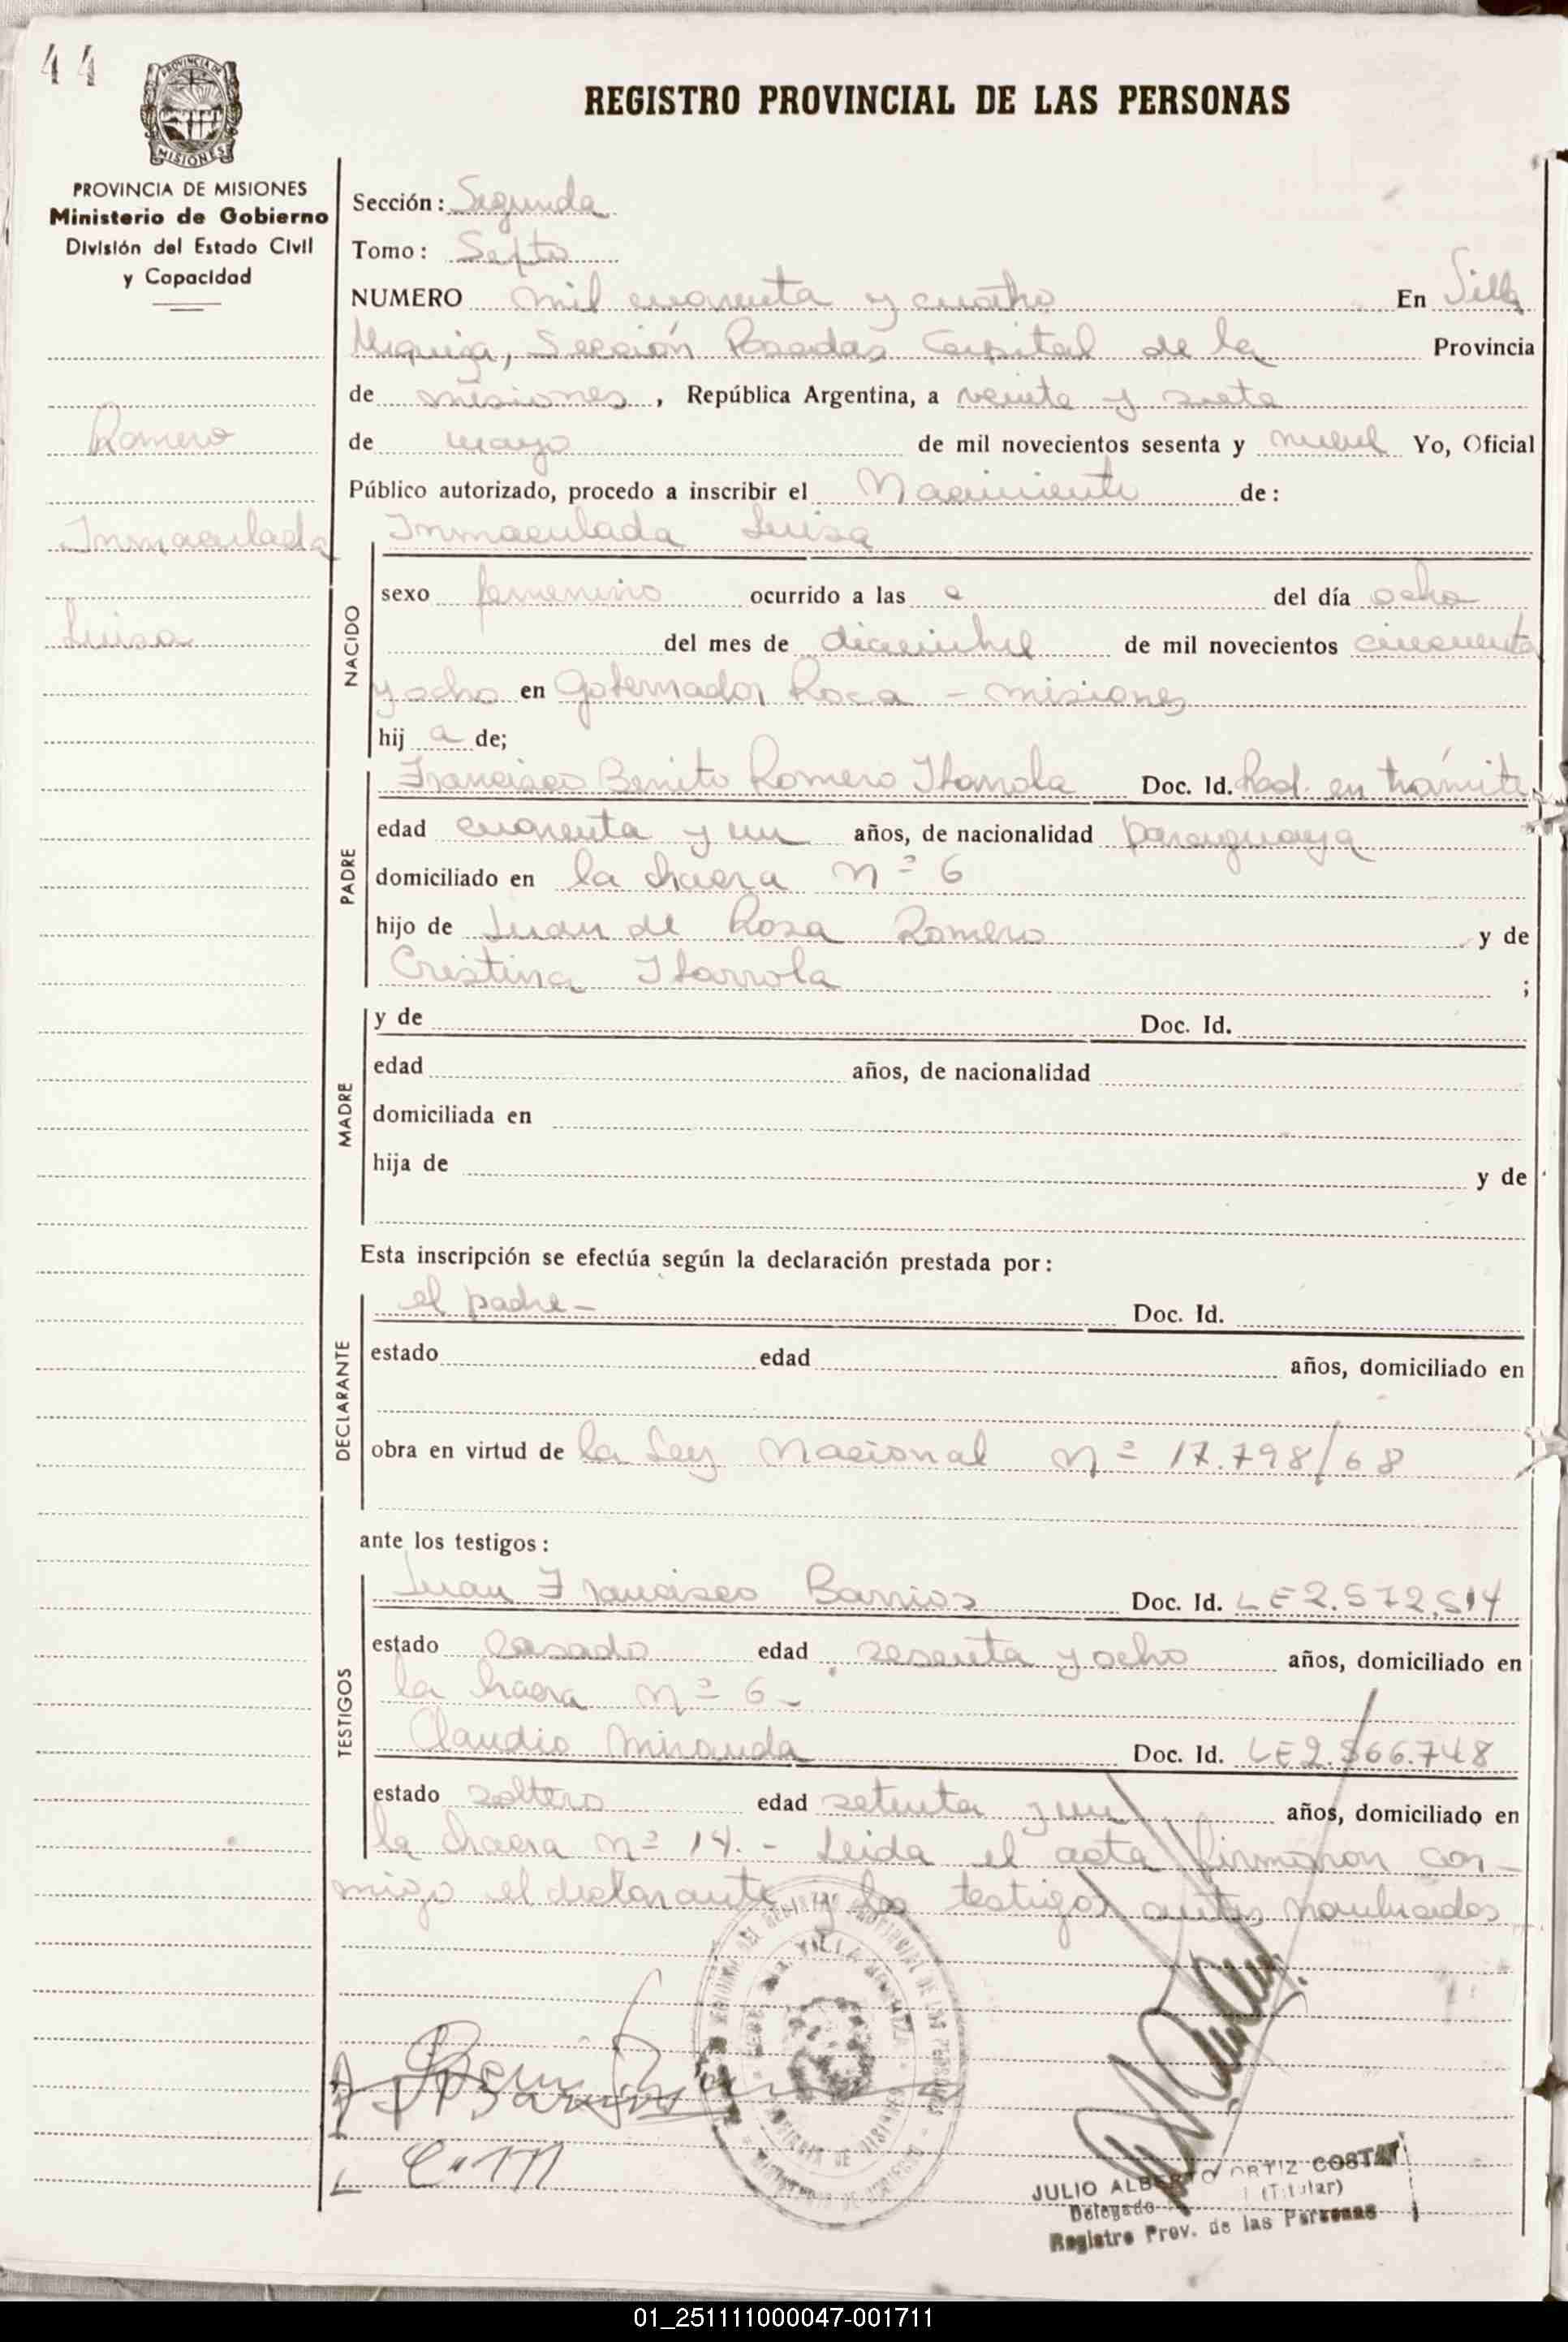 44
PROVINCIA DE MISIONES
REGISTRO PROVINCIAL DE LAS PERSONAS
PROVINCIA DE MISIONES
Ministerio de Gobierno
División del Estado Civil
y Capacidad
Sección: Segunda
Tomo:
NUMERO mil cuarenta y cuatro En Villa
Urquiza, Sección Posadas Capital de la Provincia
de misiones, República Argentina, a veinte y siete
Romero
de mayo de mil novecientos sesenta y nueve Yo, Oficial
Público autorizado, procedo a inscribir el Nacimiento de:
Inmaculada
Inmaculada Luisa
Luisa
NACIDO
sexo femenino ocurrido a las del día ocho
del mes de diciembre de mil novecientos cincuenta
y ocho en Gobernador Roca - misiones
hij a de;
PADRE
Francisco Benito Romero Ibarrola Doc. Id. Rad. en trámite
edad cuarenta y un años, de nacionalidad paraguaya
domiciliado en la chacra Nº 6
hijo de Juan de Rosa Romero y de
Cristina Ibarrola ;
MADRE
y de Doc. Id.
edad años, de nacionalidad
domiciliada en
hija de y de
Esta inscripción se efectúa según la declaración prestada por:
DECLARANTE
el padre- Doc. Id.
estado edad años, domiciliado en
obra en virtud de la Ley Nacional Nº 17.798/68
ante los testigos:
TESTIGOS
Juan Francisco Barrios Doc. Id. LE2.572.514
estado casado edad sesenta y ocho años, domiciliado en
la chacra Nº 6-
Claudio Miranda Doc. Id. LE2.566.748
estado soltero edad setenta y un años, domiciliado en
la chacra Nº 14.- Leida el acta firmaron con-
migo el declarante y los testigos antes nombrados
C.M
JULIO ALBERTO ORTIZ COSTA
(Titular)
Delegado
Registro Prov. de las Personas
01_251111000047-001711